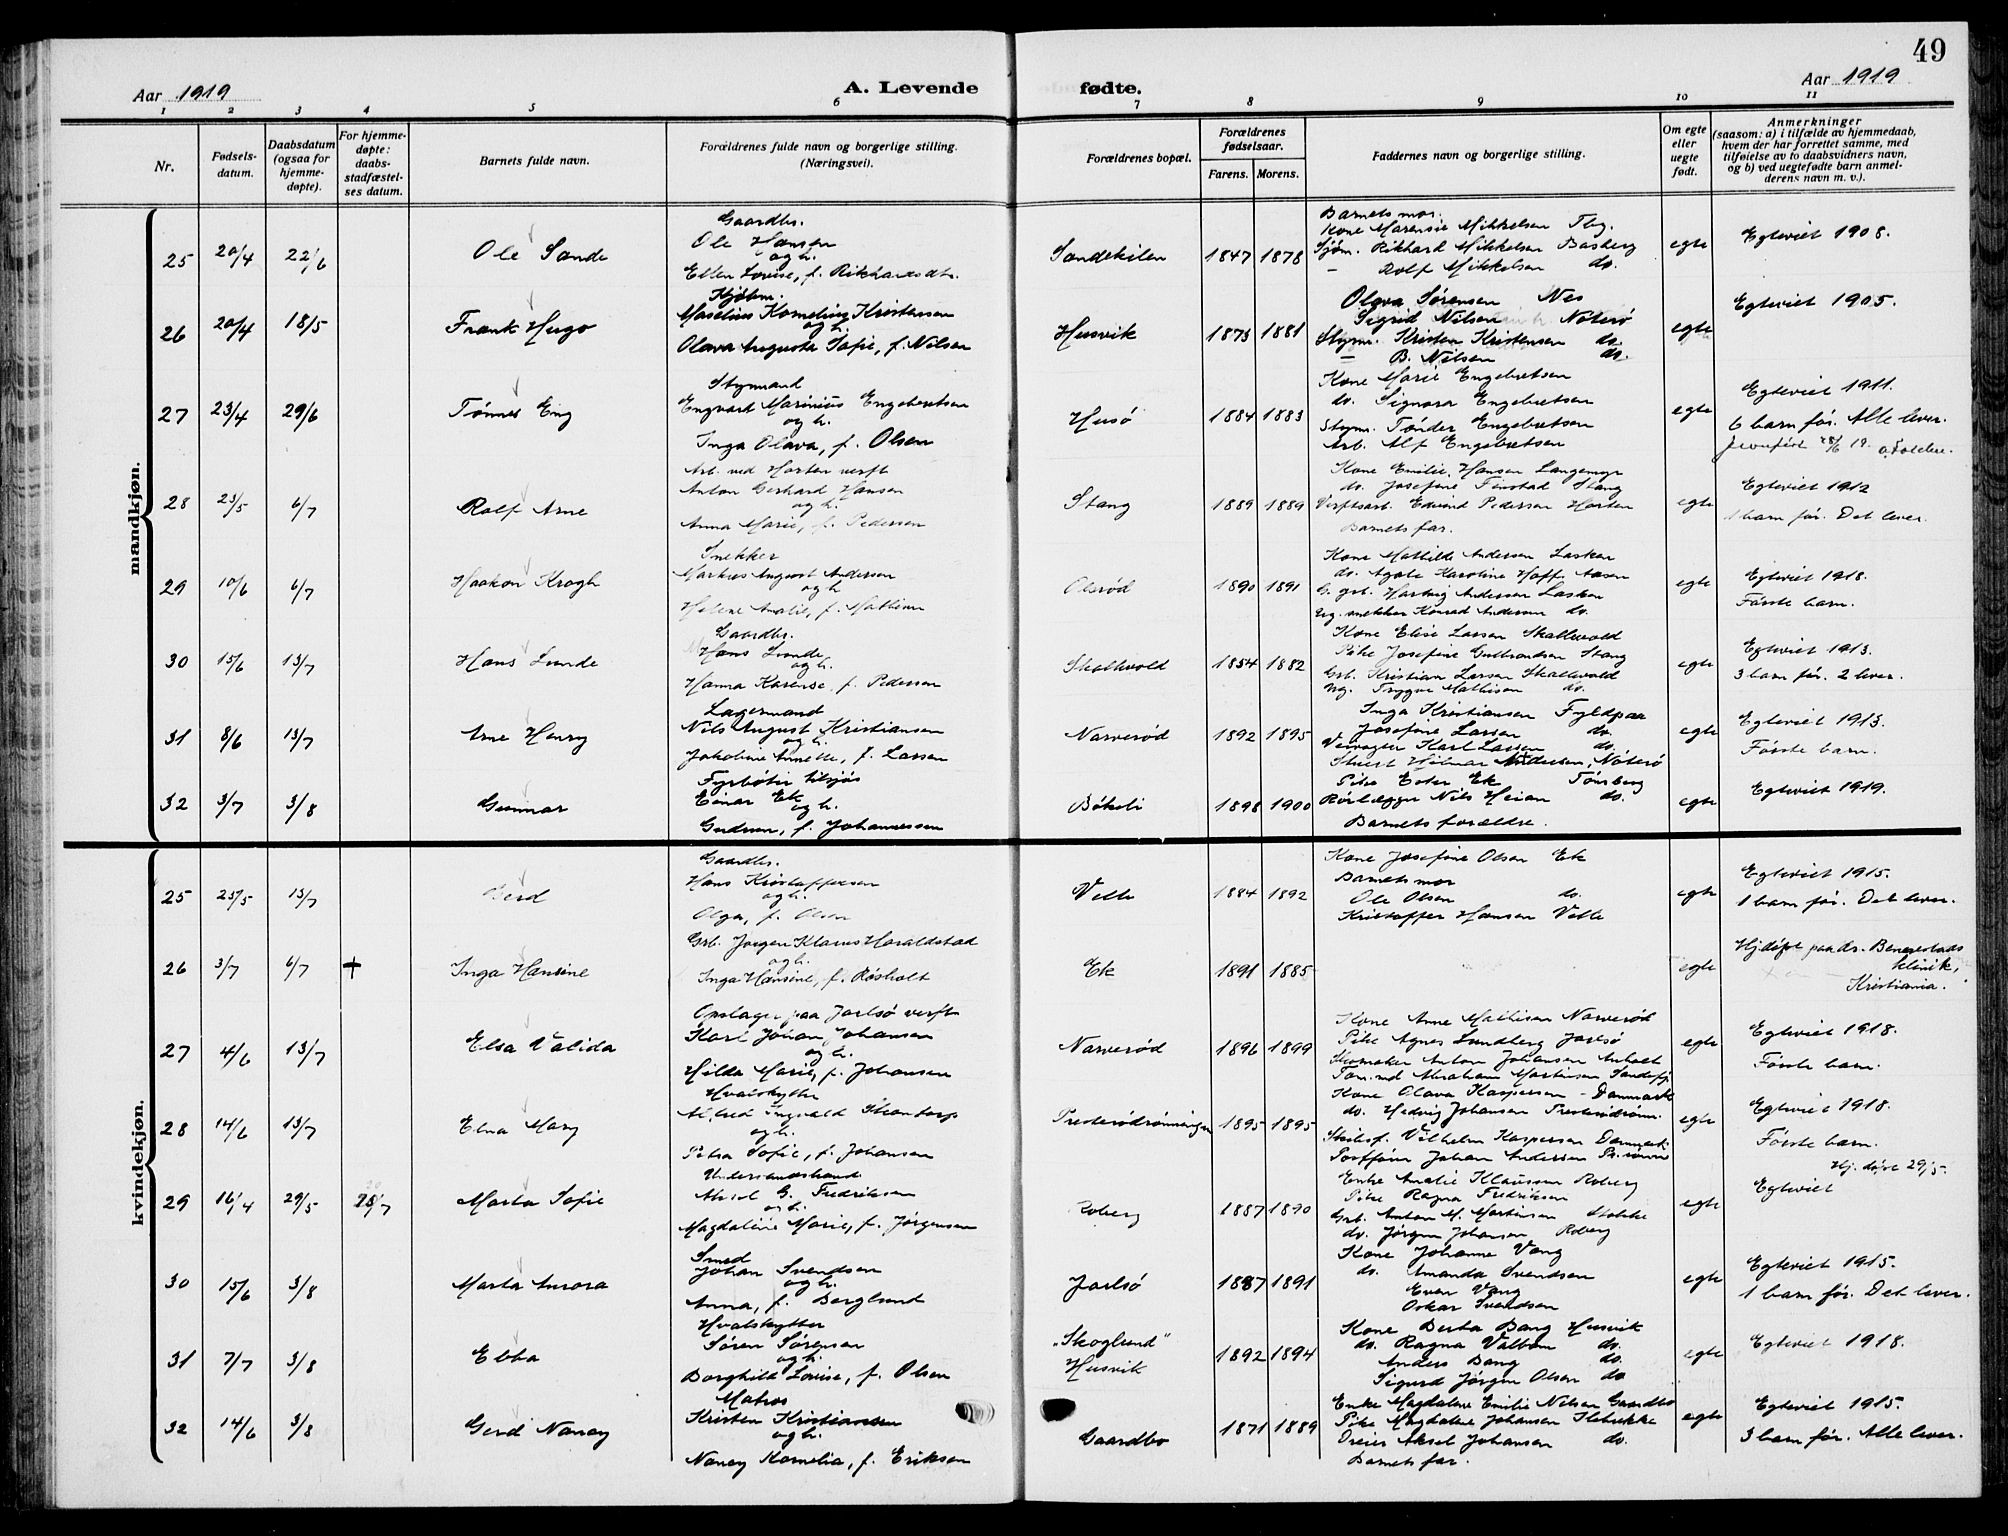 49
Aar 1919
A. Levende fødte.
Aar 1919
1 2 3 4 5 6 7 8 9 10 11
Nr.
Fødsels-
datum.
Daabsdatum
(ogsaa for
hjemme-
døpte).
For hjemme-
døpte:
daabs-
stadfæstel-
ses datum.
Barnets fulde navn.
Forældrenes fulde navn og borgerlige stilling.
(Næringsvei).
Forældrenes bopæl.
Forældrenes
fødselsaar.
Farens. Morens.
Faddernes navn og borgerlige stilling.
Om egte
eller
uegte
født.
Anmerkninger
(saasom: a) i tilfælde av hjemmedaab,
hvem der har forrettet samme, med
tilføielse av to daabsvidners navn,
og b) ved uegtefødte barn anmel-
derens navn m. v.).
mandkjøn.
25 20/4 22/6 Ole Sande
Gaardbr.
Ole Hansen
og h.
Ellen Lovise, f. Rikhardsdtr.
Sandekilen 1847 1878
Barnets mor.
Kone Marensie Mikkelsen Tbg.
Sjøm. Rikhard Mikkelsen Basberg
— Rolf Mikkelsen do.
egte Egteviet 1908.
26 20/4 18/5 Frank Hugo
Kjøbm.
Maselius Kornelius Kristensen
og h.
Olava Augusta Sofie, f. Nilsen
Husvik 1873 1881
Olava Sørensen Nes
Sigrid Nilsen Nøterø
Styrm. Kristen Kristensen do.
— B. Nilsen do.
egte Egteviet 1905.
27 23/4 29/6 Tønnes Eng
Styrmand
Engvart Marinius Engebretsen
og h.
Inga Olava, f. Olsen
Husø 1884 1883
Kone Marie Engebretsen
do. Signora Engebretsen
Styrm. Tønder Engebretsen
Arb. Alf Engebretsen
egte Egteviet 1911.
6 barn før. Alle lever.
28 23/5 6/7 Rolf Arne
Arb. ved Horten verft
Anton Gerhard Hansen
og h.
Anna Marie, f. Pedersen
Stang 1889 1889
Kone Emilie Hansen Langemyr
do. Josefine Finstad Stang
Verftsarb. Edvind Pedersen Horten
Barnets far.
egte Egteviet 1912
1 barn før. Det lever.
29 10/6 6/7 Haakon Krogh
Snekker
Markus August Andersen
og h.
Helene Amalie, f. Mathisen
Olsrød 1890 1891
Kone Mathilde Andersen Lasken
do. Agate Karoline Hoff Aasen
G. grb. Hartvig Andersen Lasken
Ug. snekker Konrad Andersen do.
egte Egteviet 1918.
Første barn.
30 15/6 13/7 Hans Lunde
Gaardbr.
Hans Lunde
og h.
Hanna Karense, f. Pedersen
Skallevold 1854 1882
Kone Elise Larsen Skallevold
Pike Josefine Gulbrandsen Stang
Grb. Kristian Larsen Skallevold
Ug. Trygve Mathisen do.
egte Egteviet 1913.
3 barn før. 2 lever.
31 8/6 13/7 Arne Henry
Lagermand
Nils August Kristiansen
og h.
Jakobine Annette, f. Larsen
Narverød 1892 1895
Inga Kristiansen Fyldpaa
Josefine Larsen do.
Veivogter Karl Larsen do.
Stuert Hilmar Andersen, Nøterø
egte Egteviet 1913.
Første barn.
32 3/7 3/8 Gunnar
Fyrbøter tilsjøs
Einar Ek
og h.
Gudrun, f. Johannessen
Bøkeli 1898 1900
Pike Ester Ek Tønsberg
Rørlægger Nils Heian do.
Barnets forældre.
egte Egteviet 1919.
kvindekjøn.
25 25/5 13/7 Gerd
Gaardbr.
Hans Kristoffersen
og h.
Olga, f. Olsen
Velle 1884 1892
Kone Josefine Olsen Ek
Barnets mor
Ole Olsen do.
Kristoffer Hansen Velle
egte Egteviet 1915.
1 barn før. Det lever.
26 3/7 6/7 + Inga Hansine
Grb. Jørgen Klaus Haraldstad
og h.
Inga Hansine, f. Røsholt
Ek 1891 1885
egte Hj.døpt paa dr. Benestads
klinik,
Kristiania.
27 4/6 13/7 Elsa Valida
Opslager paa Jarlsø verft
Karl Johan Johansen
og h.
Hilda Marie, f. Johansen
Narverød 1896 1899
Kone Anne Mathisen Narverød
Pike Agnes Lundberg Jarlsø
Skomaker Anton Johansen Anholt
Tøm.md Abraham Martinsen Sandefj.
egte Egteviet 1918.
Første barn.
28 14/6 13/7 Elna Mary
Hvalskytter
Alfred Ingvald
og h.
Petra Sofie, f. Johansen
Presterødrønningen 1895 1895
Kone Olava Kaspersen - Danmark
do. Hedvig Johansen Presterødrønn.
Skibsf. Vilhelm Kaspersen Danmark
Johan Andersen
egte Egteviet 1918.
Første barn.
29 16/4 29/5 20/7 Marta Sofie
Aksel G. Fredriksen
og h.
Magdalene Marie, f. Jørgensen
Roberg 1887 1890
Enke Amalie Klausen Roberg
Pike Ragna Fredriksen
Grb. Anton M. Martinsen Stokke
do. Jørgen Johansen Roberg
egte Hj. døpt 29/5.
Egteviet
30 15/6 3/8 Marta Aurora
Smed
Johan Svendsen
og h.
Anna, f. Berglund
Jarlsø 1887 1891
Kone Johanne Vang
do. Amanda Svendsen
Even Vang
Oskar Svendsen
egte Egteviet 1915.
1 barn før. Det lever.
31 7/7 3/8 Ebba
Hvalskytter
Søren Sørensen
og h.
Borghild Lovise, f. Olsen
"Skoglund"
Husvik 1892 1894
Kone Berta Bang Husvik
do. Ragna Valbom do.
Anders Bang do.
Sigurd Jørgen Olsen do
egte Egteviet 1918.
32 14/6 3/8 Gerd Nancy
Matros
Kristen Kristiansen
og h.
Nancy Kornelia, f. Eriksen
Gaardbo 1871 1889
Enke Magdalene Emilie Nilsen Gaardbo
Pike Magdalene Johansen Ilebrekke
Dreier Aksel Johansen do.
Barnets far.
egte Egteviet 1915.
3 barn før. Alle lever.